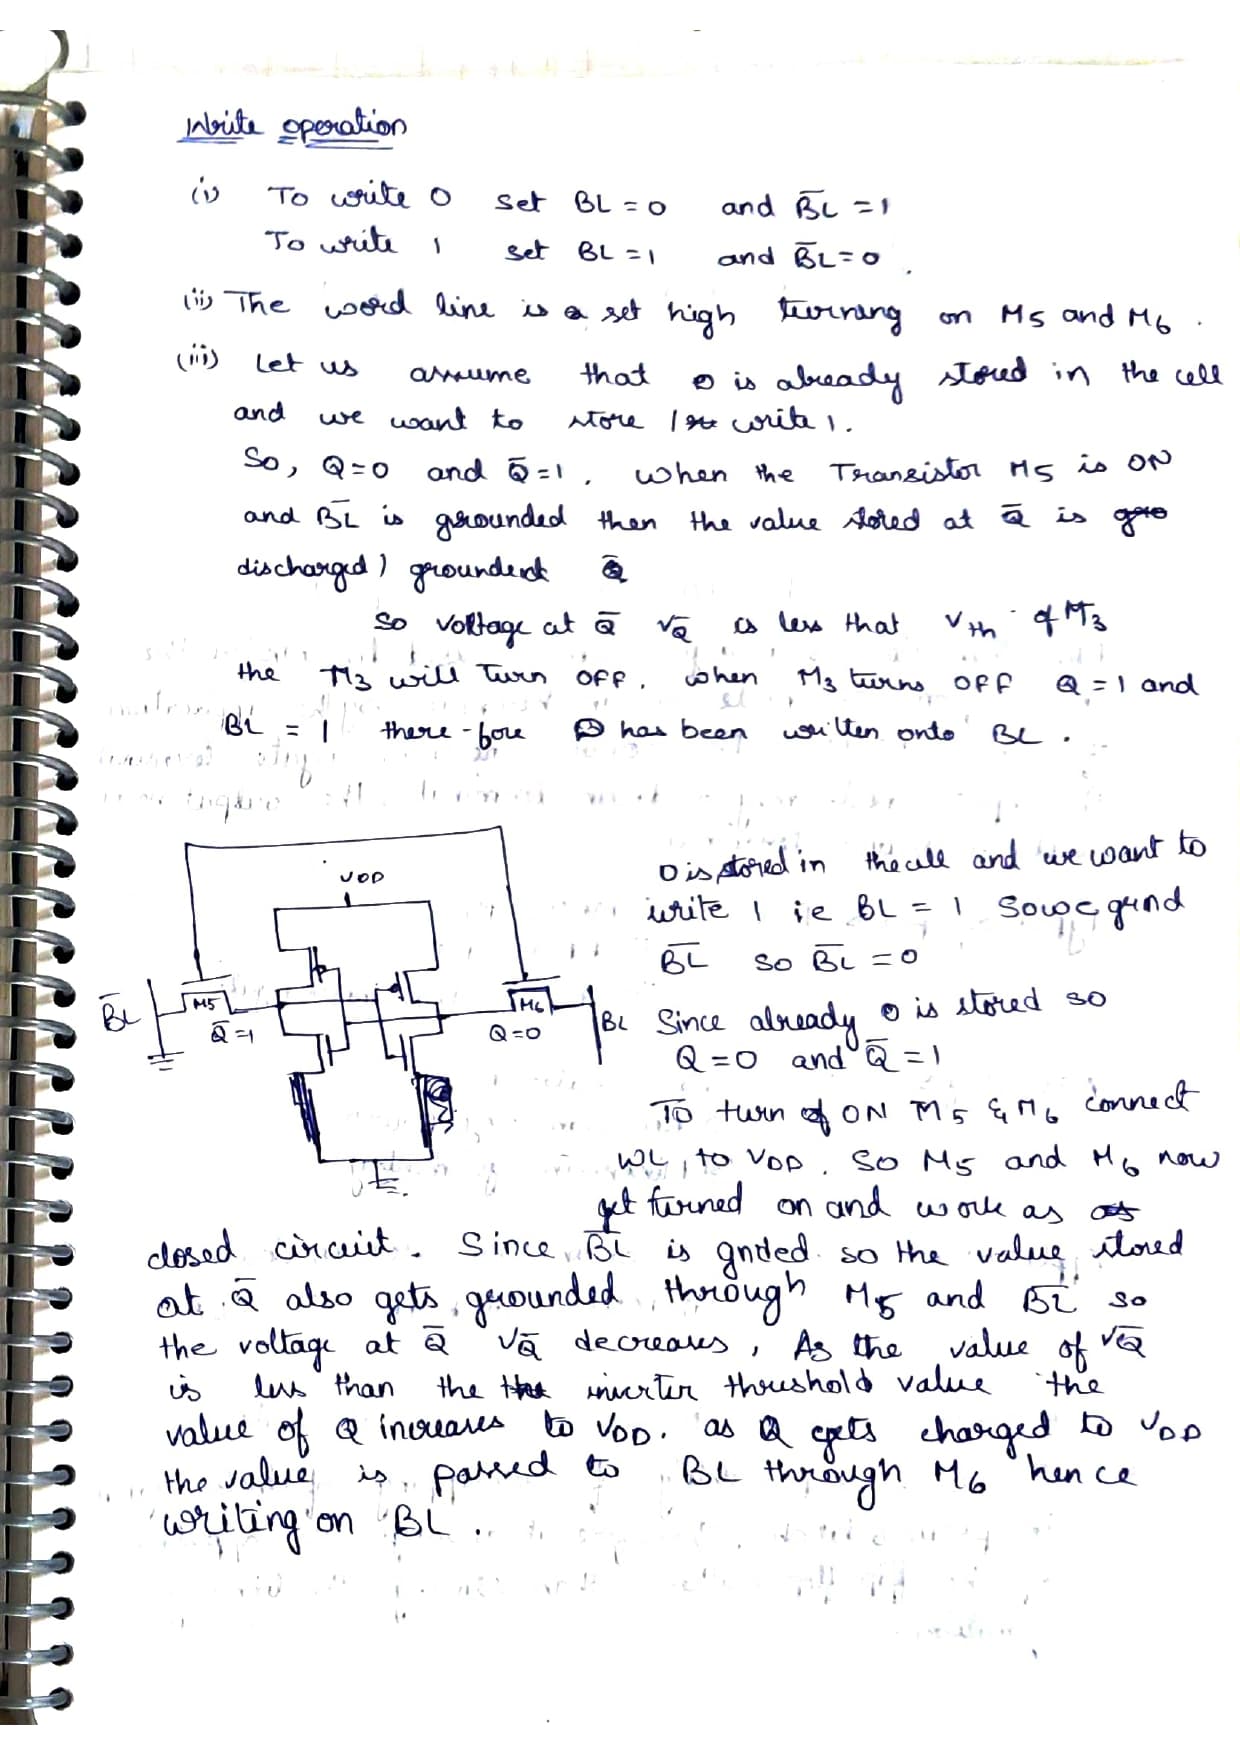 Write operation
(i) To write 0 set BL = 0 and B̅L̅ = 1
To write 1 set BL = 1 and B̅L̅ = 0 .
(ii) The word line is set high turning on M5 and M6 .
(iii) Let us assume that 0 is already stored in the cell
and we want to store / write 1.
So, Q=0 and Q̅=1 . When the Transistor M5 is ON
and B̅L̅ is grounded then the value stored at Q̅ is
discharged / grounded
So voltage at Q̅ VQ̅ is less that Vth of M3
the M3 will Turn OFF. When M3 turns OFF Q = 1 and
BL = 1 there-fore has been written onto BL .
VDD
B̅L̅
M5
Q̅=1
M6
Q=0
BL
0 is stored in the cell and we want to
write 1 ie BL = 1 So we gnd
B̅L̅ so B̅L̅ = 0
Since already 0 is stored so
Q = 0 and Q̅ = 1
To turn ON M5 & M6 connect
WL to VDD. So M5 and M6 now
get turned on and work as
closed circuit. Since B̅L̅ is gnded so the value stored
at Q̅ also gets grounded through M5 and B̅L̅ so
the voltage at Q̅ VQ̅ decreases, As the value of VQ̅
is less than the inverter threshold value the
value of Q increases to VDD. as Q gets charged to VDD
the value is passed to BL through M6 hence
writing on BL .